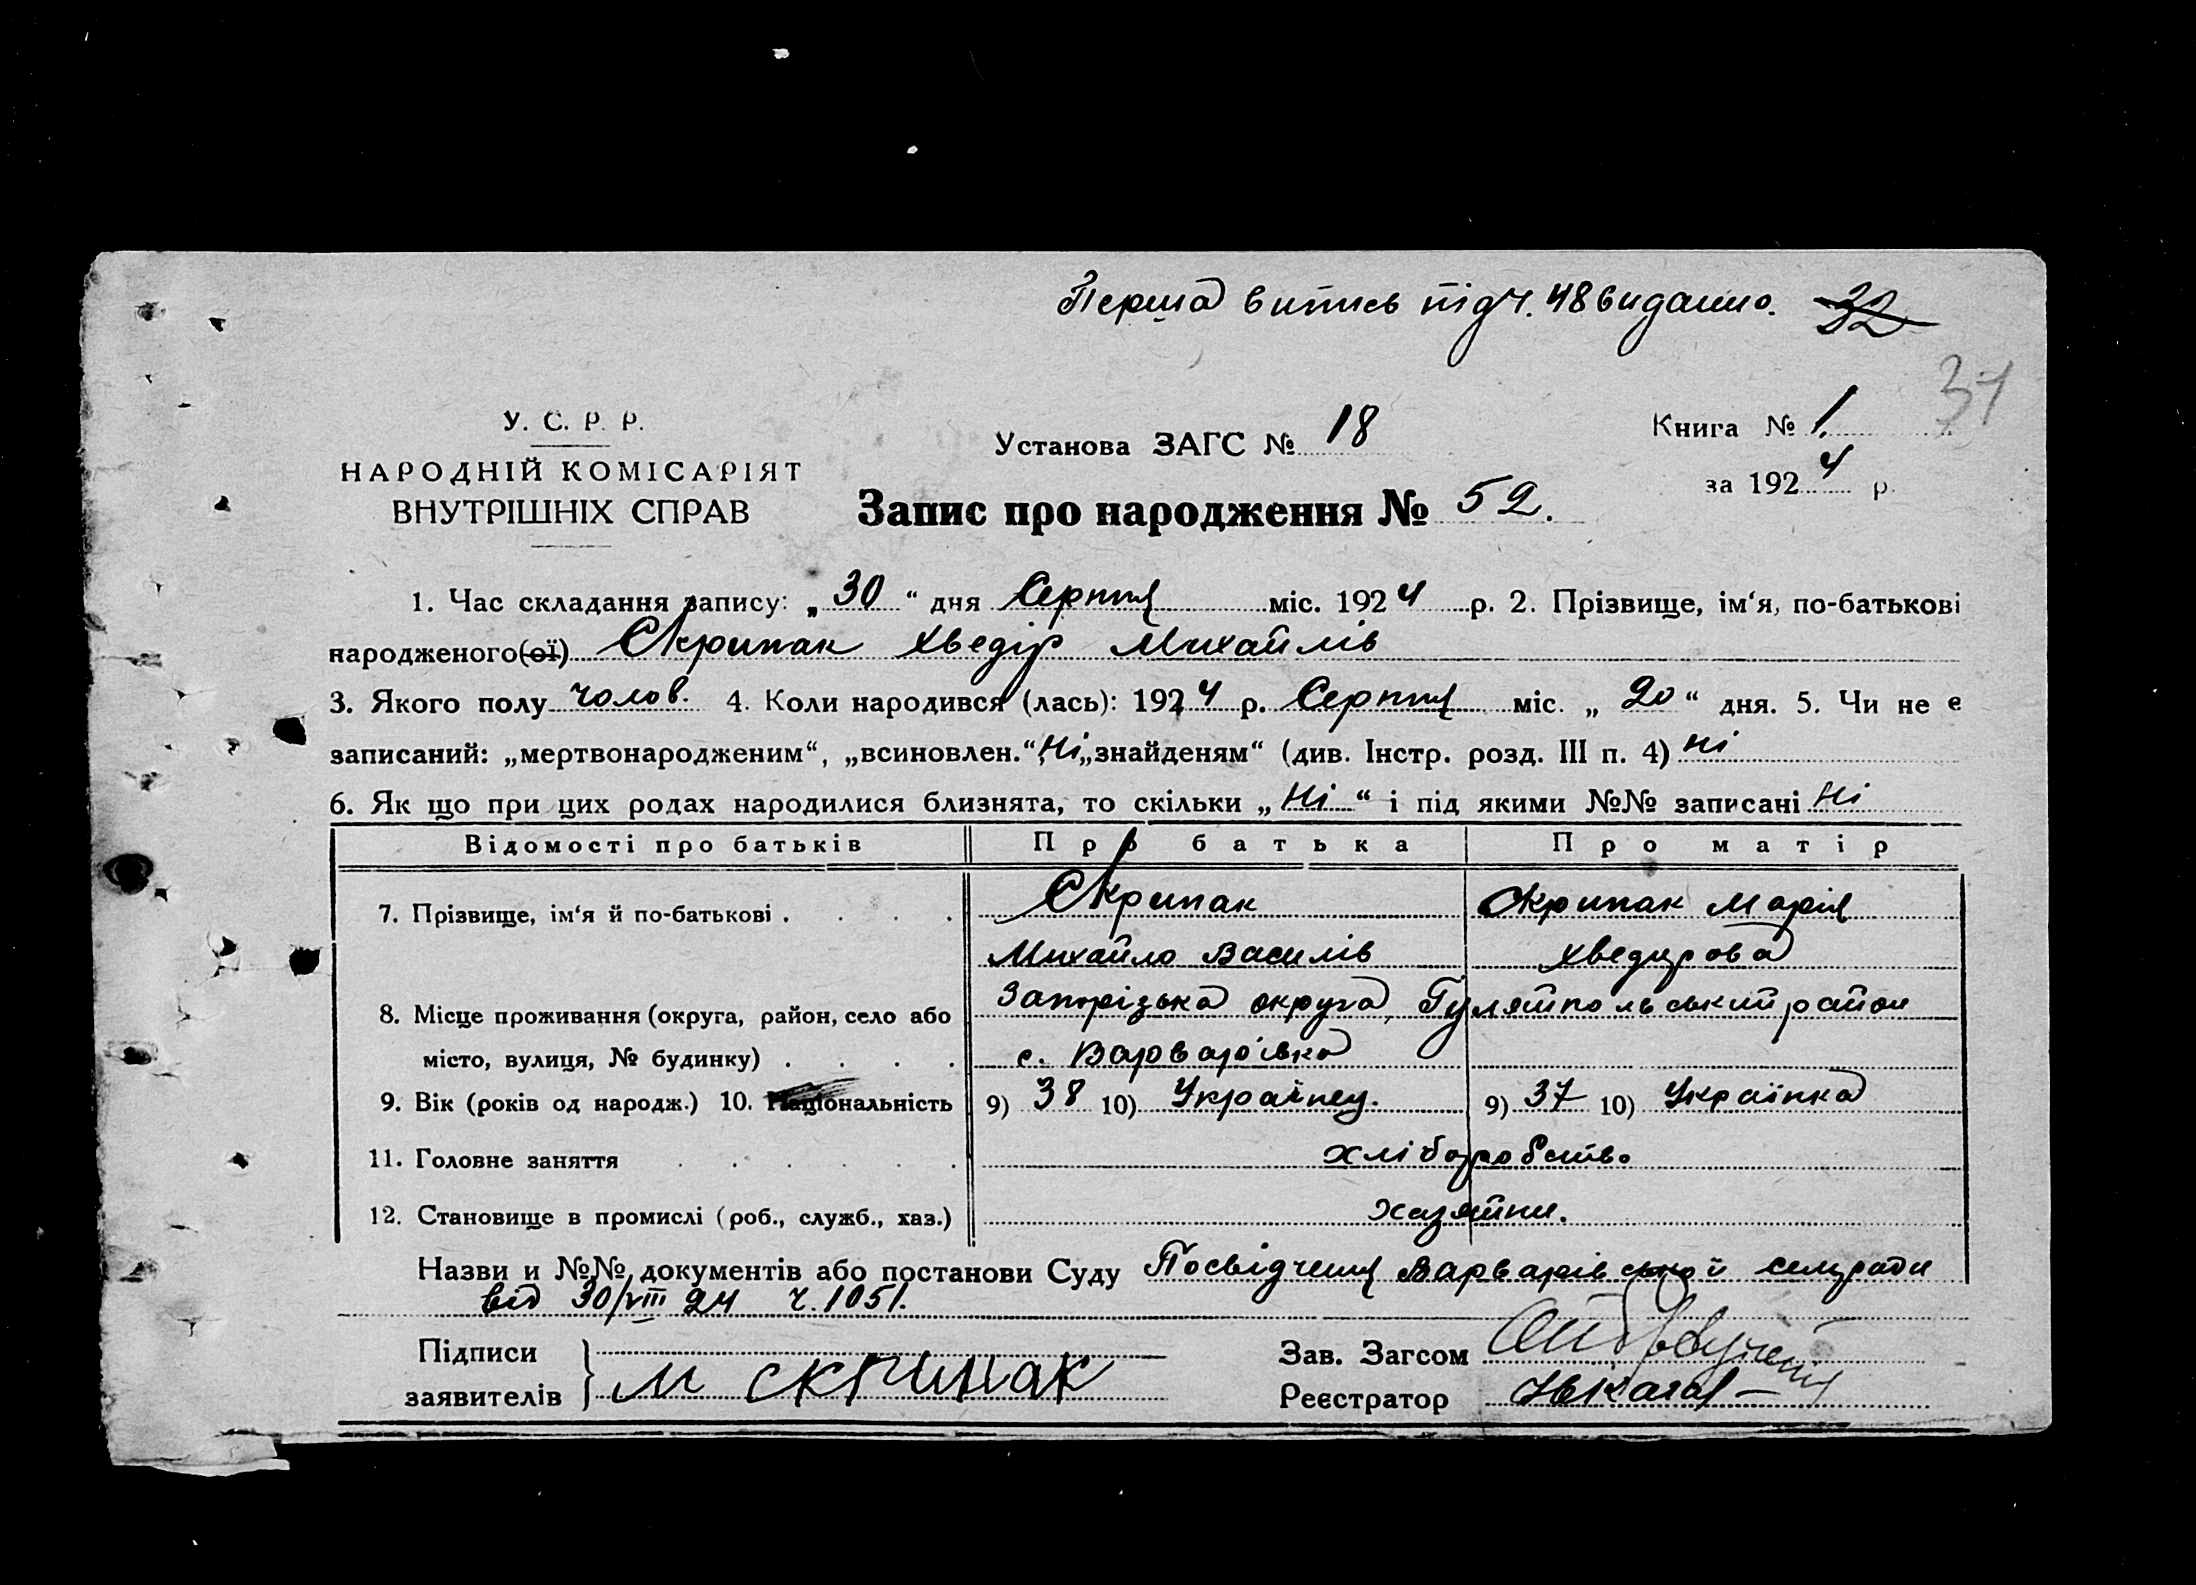 Перша витись під ч. 48 видано. 32
31
У. С. Р. Р.
НАРОДНІЙ КОМІСАРІЯТ
ВНУТРІШНІХ СПРАВ
Установа ЗАГС № 18
Книга № 1.
за 1924 р.
Запис про народження № 52.
1. Час складання запису: „30“ дня Серпня міс. 1924 р. 2. Прізвище, ім‘я, по-батькові
народженого(ої) Скрипак Хведір Михайлів
3. Якого полу чолов. 4. Коли народився (лась): 1924 р. Серпня міс. „20“ дня. 5. Чи не є
записаний: „мертвонародженим“, „всиновлен.“, Ні „знайденям“ (див. Інстр. розд. III п. 4) ні
6. Як що при цих родах народилися близнята, то скільки „Ні“ і під якими №№ записані Ні
Відомості про батьків Про батька Про матір
7. Прізвище, ім‘я й по-батькові . . . . Скрипак Скрипак Марія
Михайло Василів Хведирова
8. Місце проживання (округа, район, село або Запорізька округа, Гуляйпольський район
місто, вулиця, № будинку) . . . . с. Варварівка
9. Вік (років од народж.) 10. Національність 9) 38 10) Українец. 9) 37 10) Українка
11. Головне заняття . . . . . . хліборобство
12. Становище в промислі (роб., служб., хаз.) хазяїни.
Назви и №№ документів або постанови Суду Посвідчення Варварівської сельради
від 30/VIII 24 ч. 1051.
Підписи
заявителів М СКРИПАК
Зав. Загсом
Реєстратор